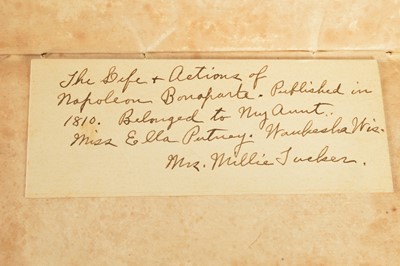 The Life + Actions of
Napoleon Bonaparte. Published in
1810. Belonged to My Aunt.
Miss Ella Putney. Waukesha Wis.
Mrs. Millie Tucker.